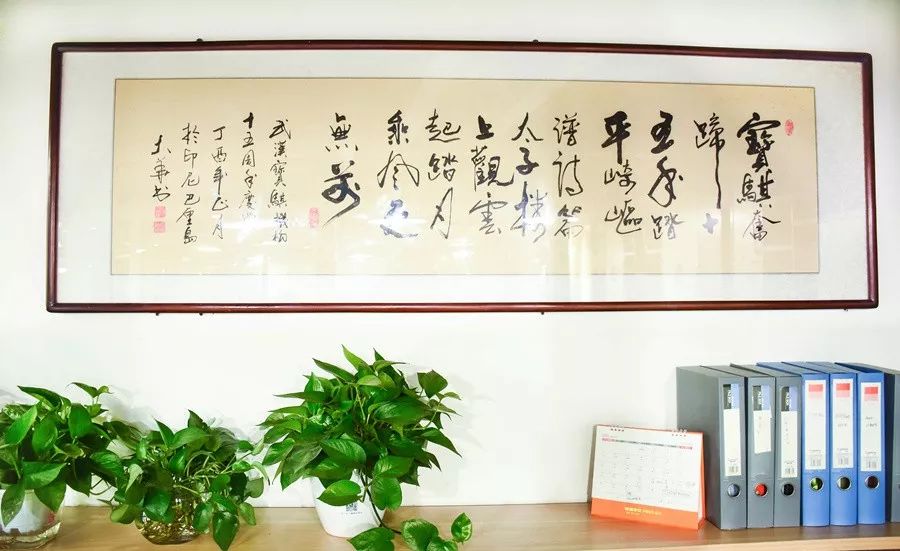 寶騏奮
蹄十
五年踏
平崎嶇
譜詩篇
太子樓
上觀雲
起踏月
乘風更
無前
武漢寶騏機構
十五周年慶
丁酉年正月
於印尼巴厘島
大華書